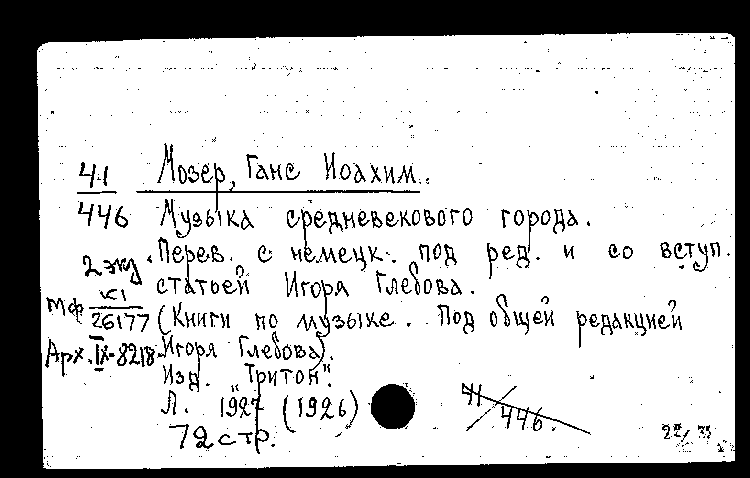 41 Мозер, Ганс Иоахим.
446 Музыка средневекового города.
2 экз. Перев. с немецк. под ред. и со вступ.
статьей Игоря Глебова.
Мф К1/26177 (Книги по музыке. Под общей редакцией
Арх. IX-8218 Игоря Глебова).
Изд. "Тритон".
Л. 1927 (1926) 41/446.
72 стр.